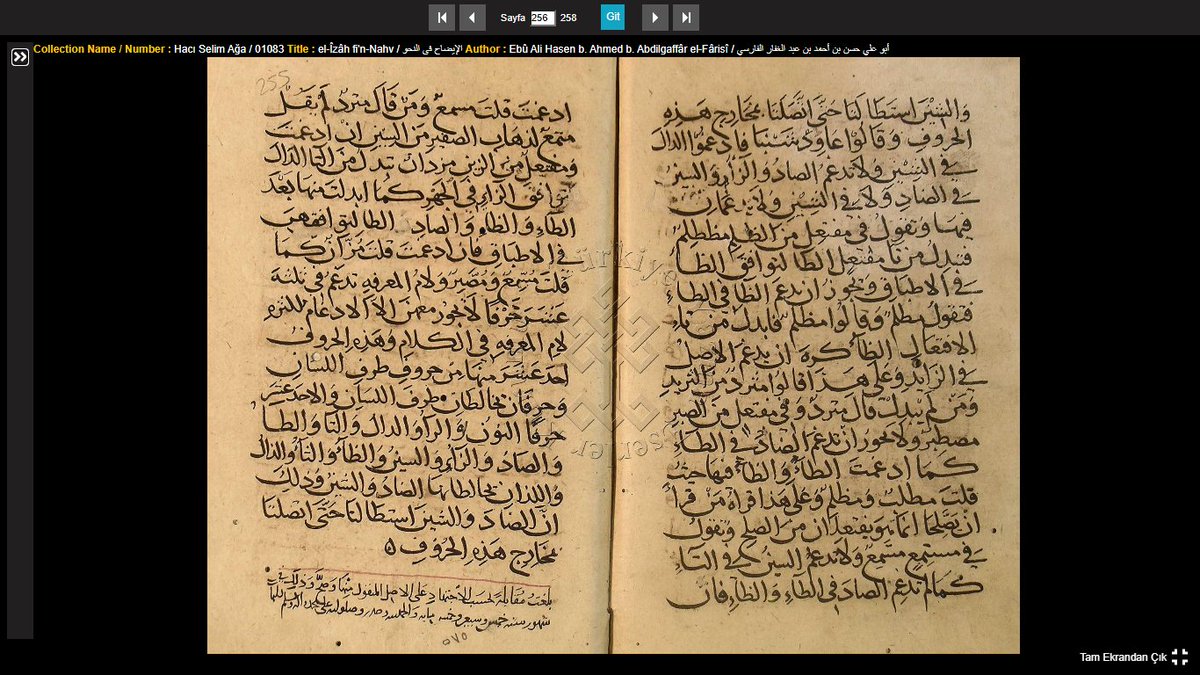 Sayfa 256 258 Git
Collection Name / Number : Hacı Selim Ağa / 01083 Title : el-Îzâh fi'n-Nahv / الإيضاح في النحو Author : Ebû Ali Hasen b. Ahmed b. Abdilgaffâr el-Fârisî / أبو علي حسن بن أحمد بن عبد الغفار الفارسي
والشين استطالتا حتى اتصلتا بمخارج هذه
الحروف وقالوا عاود شنبا فادغموا الدال
في الشين ولا تدغم الصاد والزاي والسين
في الضاد ولا في الشين ولا يدغمان
فيها وتقول في مفتعل من الظلم مظطلم
فتبدل من تا مفتعل الطا لتوافق الظا
في الاطباق ويجوز ان تدغم الظا في الطاء
فتقول مطلم وقالوا مظلم فابدل من تاء
الافتعال الظا كره ان يدغم الاصل
في الزائد وعلى هذا قالوا مثرد من الثريد
ومن لم يبدل قال مترد وفي مفتعل من الصبر
مصطبر ولا يجوز ان تدغم الصاد في الطاء
كما ادغمت الظاء والطاء فيها حيث
قلت مطلب ومظلم وعلى هذا قراة من قرا
ان يصلحا انما هو يفتعلا من الصلح وتقول
في مستمع مسمع ولا تدغم السين في التاء
كما لم تدغم الصاد في الطاء والظاء فان
255
ادغمت قلت مسمع ومن قال مترد لم يقل
متمع لذهاب الصفير من السين ان ادغمت
ومفتعل من الزين مزدان تبدل من التا الدال
توافق الزاي في الجهر كما ابدلت منها بعد
الطاء والظاء والصاد الطا لتوافقها
في الاطباق فان ادغمت قلت مزان كما
قلت مسمع ومصبر ولام المعرفة تدغم في ثلثة
عشر حرفا لا يجوز معهن الا الادغام لكثرة
لام المعرفة في الكلام وهذه الحروف
احد عشر منها من حروف طرف اللسان
وحرفان يخالطان طرف اللسان والاحد عشر
حرفا النون والرا والدال والتا والطا
والصاد والزاي والسين والظا والثا والذال
واللذان خالطاها الضاد والشين وذلك
ان الضاد والشين استطالتا حتى اتصلتا
بمخارج هذه الحروف ه
بلغت مقابلة بحسب الاجتهاد على الاصل المنقول منها وصح وذلك في
شهور سنه خمس وسبعين وخمس مايه والحمد لله
٥٧٥
Türkiye
eserler
Tam Ekrandan Çık